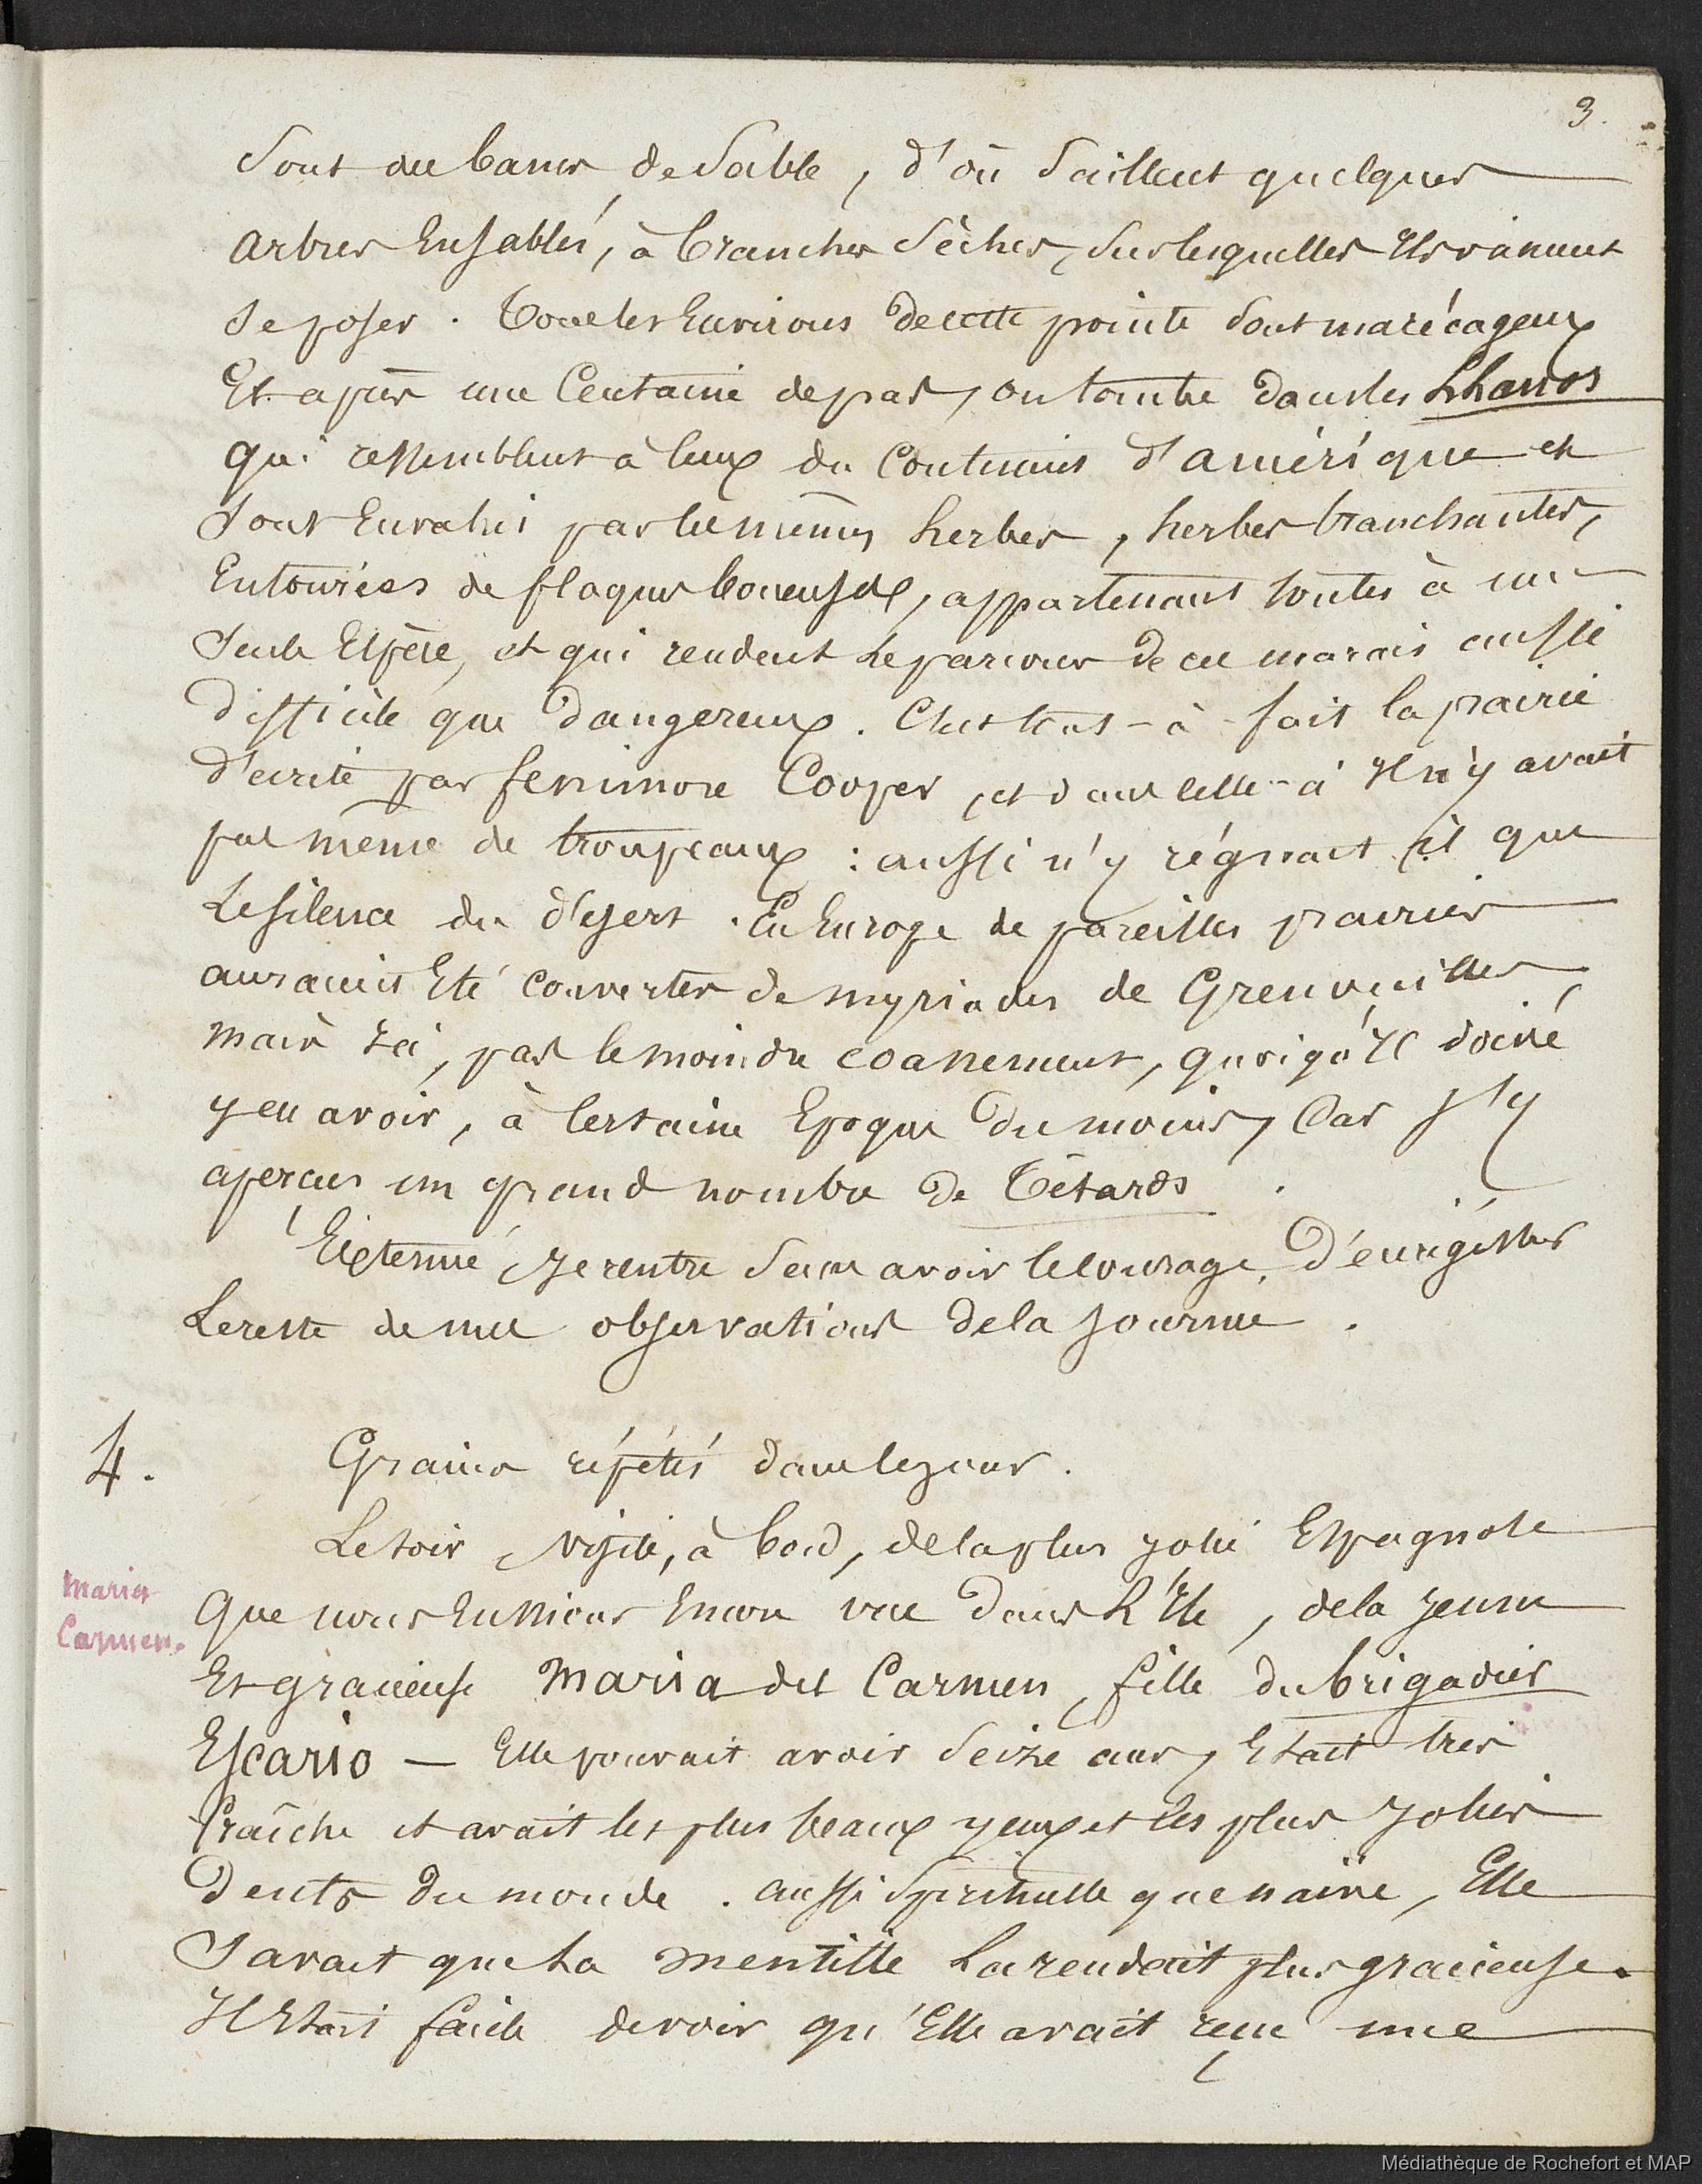 3.
Sont des bancs de Sable, d'où Saillent quelques
arbres Ensablés, à branches Sèches, Sur lesquelles Ils viennent
Se poser. Tous les Environs de cette pointe Sont marécageux
Et après une Centaine de pas, on tombe dans les Lhanos
qui ressemblent à Ceux du Continent d'amérique et
Sont Envahis par les mêmes herbes, herbes tranchantes,
Entourées de flaques boueuses, appartenant toutes à une
Seule Espèce, et qui rendent le parcours de ces marais aussi
difficile que dangereux. C'est tout-à-fait la prairie
d'écrite par fenimore Cooper, et dans celle-là Il n'y avait
pas même de troupeaux : aussi n'y régnait il que
Le silence du désert. En Europe de pareilles prairies
auraient Eté couvertes de myriades de Grenouilles,
mais Ici, pas le moindre coassement, quoiqu'Il doive
y en avoir, à Certaine Epoque du moins, Car J'y
aperçus un grand nombre de Tétards.
Exténué, Je rentre Sans avoir le courage d'enrégistrer
Le reste de mes observations de la Journée.
4.
Grains répétés dans le jour.
Le soir, visite, à bord, de la plus Jolie Espagnole
Que nous Eussions Encore vue dans L'Ile, de la Jeune
Maria
Carmen.
Et gracieuse Maria del Carmen, fille du brigadier
Escario — Elle pouvait avoir Seize ans, Etait très
fraîche et avait les plus beaux yeux et les plus Jolies
dents du monde. aussi Spirituelle que naïve, Elle
Savait que la mentille La rendait plus gracieuse.
Il Etait facile de voir qu'Elle avait reçu une
Médiathèque de Rochefort et MAP